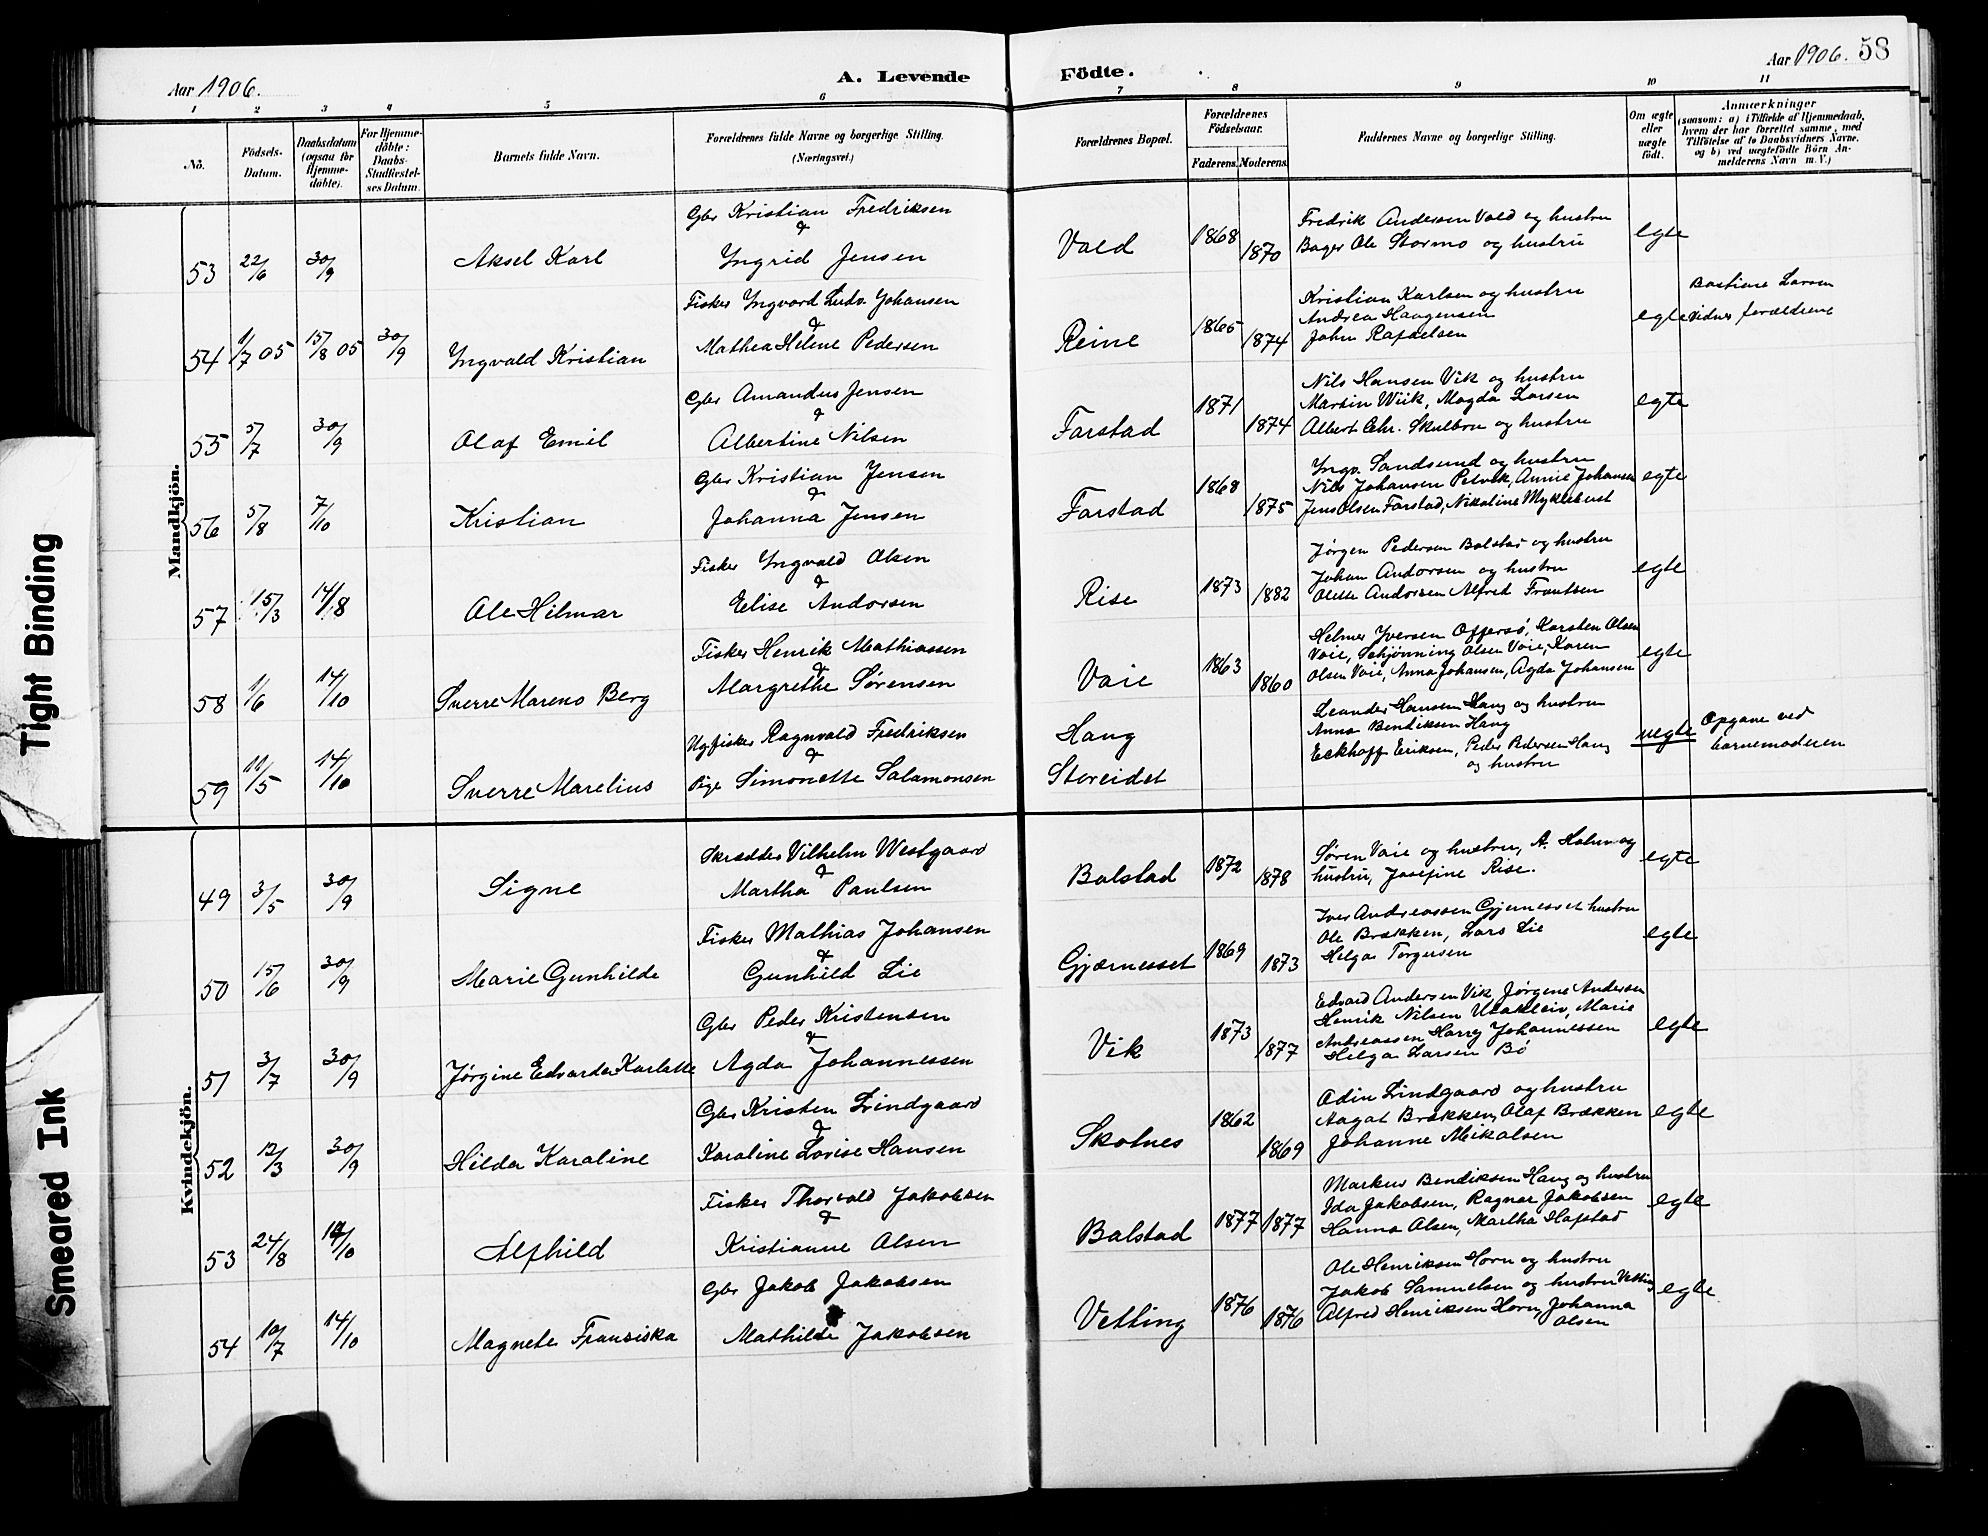 Tight Binding
Smeared Ink
Aar 1906.
A. Levende
Födte.
Aar 1906. 58
1 2 3 4 5 6 7 8 9 10 11
Nö.
Födsels-Datum.
Daabsdatum (ogsaa for Hjemme-döbte).
For Hjemme-döbte: Daabs-Stadfæstel-ses Datum.
Barnets fulde Navn.
Forældrenes fulde Navne og borgerlige Stilling. (Næringsvei.)
Forældrenes Bopæl.
Forældrenes Födselsaar.
Faderens. Moderens.
Faddernes Navne og borgerlige Stilling.
Om ægte eller uægte födt.
Anmærkninger
(saasom: a) i Tilfælde af Hjemmedaab,
hvem der har forrettet samme, med
Tilföielse af to Daabsvidners Navne.
og b) ved uægtefödte Börn An-
melderens Navn m. V.)
Mandkjön.
53 22/6 30/9 Aksel Karl
Gbr Kristian Fredriksen
&
Yngrid Jensen
Vold 1868 1870
Fredrik Andersen Vold og hustru
Bager Ole Stormo og hustru
egte
54 1/7 05 15/8 05 30/9 Yngvald Kristian
Fisker Yngvard Ludv. Johansen
&
Mathea Helene Pedersen
Reine 1865 1874
Kristian Karlsen og hustru
Andrea Haagensen
John Rafaelsen
egte
Bastiane Larsen
Vidner forældrene
55 5/7 30/9 Olaf Emil
Gbr Amandus Jensen
&
Albertine Nilsen
Farstad 1871 1874
Nils Hansen Vik og hustru
Martin Wiik, Magda Larsen
Albert Chr. Skulbru og hustru
egte
56 5/8 7/10 Kristian
Gbr Kristian Jensen
&
Johanna Jensen
Farstad 1868 1875
Yngv. Sandsund og hustru
Nils Johansen Petvik, Annie Johansen
Jens Olsen Farstad, Nikoline Myklebust
egte
57 15/3 14/8 Ole Hilmar
Fisker Yngvald Olsen
&
Elise Andorsen
Rise 1873 1882
Jørgen Pedersen Balstad og hustru
Johan Andorsen og hustru
Olette Andorsen Alfred Frantsen
egte
58 1/6 14/10 Sverre Mareno Berg
Fisker Henrik Mathiassen
&
Margrethe Sørensen
Vaie 1863 1860
Helmer Iversen Offersø, Karsten Olsen
Vaie, Schjønning Olsen Vaie, Karen
Olsen Vaie, Anna Johansen, Agda Johansen
egte
59 11/5 14/10 Sverre Marelius
Ugfisker Ragnvald Fredriksen
&
Pige Simonette Salamonsen
Haug
Storeidet
Leander Hansen Haug og hustru
Anna Bendiksen Haug
Eckhoff Eriksen, Peder Pedersen Haug
og hustru
uegte
Opgave ved
barnemoderen
Kvindekjön.
49 3/5 30/9 Signe
Skrædder Vilhelm Westgaard
&
Martha Paulsen
Balstad 1872 1878
Søren Vaie og hustru, A. Holm og
hustru, Josefine Rise.
egte
50 15/6 30/9 Marie Gunhilde
Fisker Mathias Johansen
&
Gunhild Lie
Gjærnesset 1869 1873
Iver Andreassen Gjernesset hustru
Ole Brækken, Lars Lie
Helga Torgersen
egte
51 3/7 30/9 Jørgine Edvarda Karlotte
Gbr Peder Kristensen
&
Agda Johannessen
Vik 1873 1877
Edvard Andersen Vik, Jørgine Andersen
Henrik Nilsen Utakleiv, Marie
Andreassen Harry Johannessen
Helga Larsen Bø
egte
52 12/3 30/9 Hilda Karoline
Gbr Kristen Lindgaard
&
Karoline Lovise Hansen
Skotnes 1862 1869
Odin Lindgaard og hustru
Aagot Brækken, Olaf Brækken
Johanne Mikalsen
egte
53 24/8 14/10 Alfhild
Fisker Thorvald Jakobsen
&
Kristianne Olsen
Balstad 1877 1877
Markus Bendiksen Haug og hustru
Ida Jakobsen, Ragnar Jakobsen
Hanna Olsen, Martha Hafstad
egte
54 10/7 14/10 Magnete Fransiska
Gbr Jakob Jakobsen
Mathilde Jakobsen
Vetting 1876 1876
Ole Henriksen Horn og hustru
Jakob Samuelsen og hustru Vetting
Alfred Henriksen Horn, Johanna
Olsen
egte